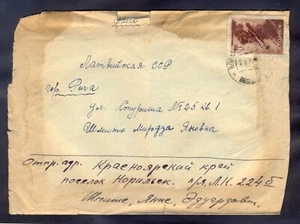 Латвийская ССР
гор. Рига
ул. Стурина № 25 кв 1
Шмите Мирдза Яновна
Отпр. адр. Красноярский край
поселок Норильск. п/я Л.К. 224б
Шмите, Анис, Эдуардович